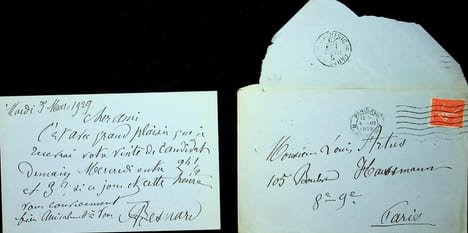 Mardi 5 Mars 1929
Cher ami
C'est avec grand plaisir que je
recevrai votre visite de candidat
Demain Mercredi entre
et 9h si ce jour et cette heure
vous conviennent
bien Amicalement à Vous
ABesnard
Monsieur Louis Artus
105 Boulev Haussmann
8e - 9e
Paris